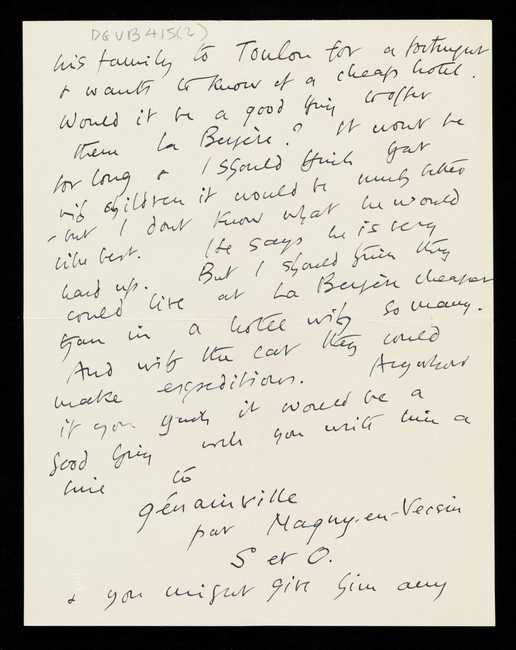 DGVB415(2)
his family to Toulon for a fortnight
& wants to know of a cheap hotel.
Would it be a good thing to offer
them La Bergère? It wont be
for long & I should think that
with children it would be much better
- but I dont know what he would
like best. He says he is very
hard up. But I should think they
could live at La Bergère cheaper
than in a hotel with so many.
And with the car they could
make expeditions. Anyhow
if you think it would be a
good thing will you write him a
line to
Génainville
par Magny-en-Vexin
S et O.
& you might give him any